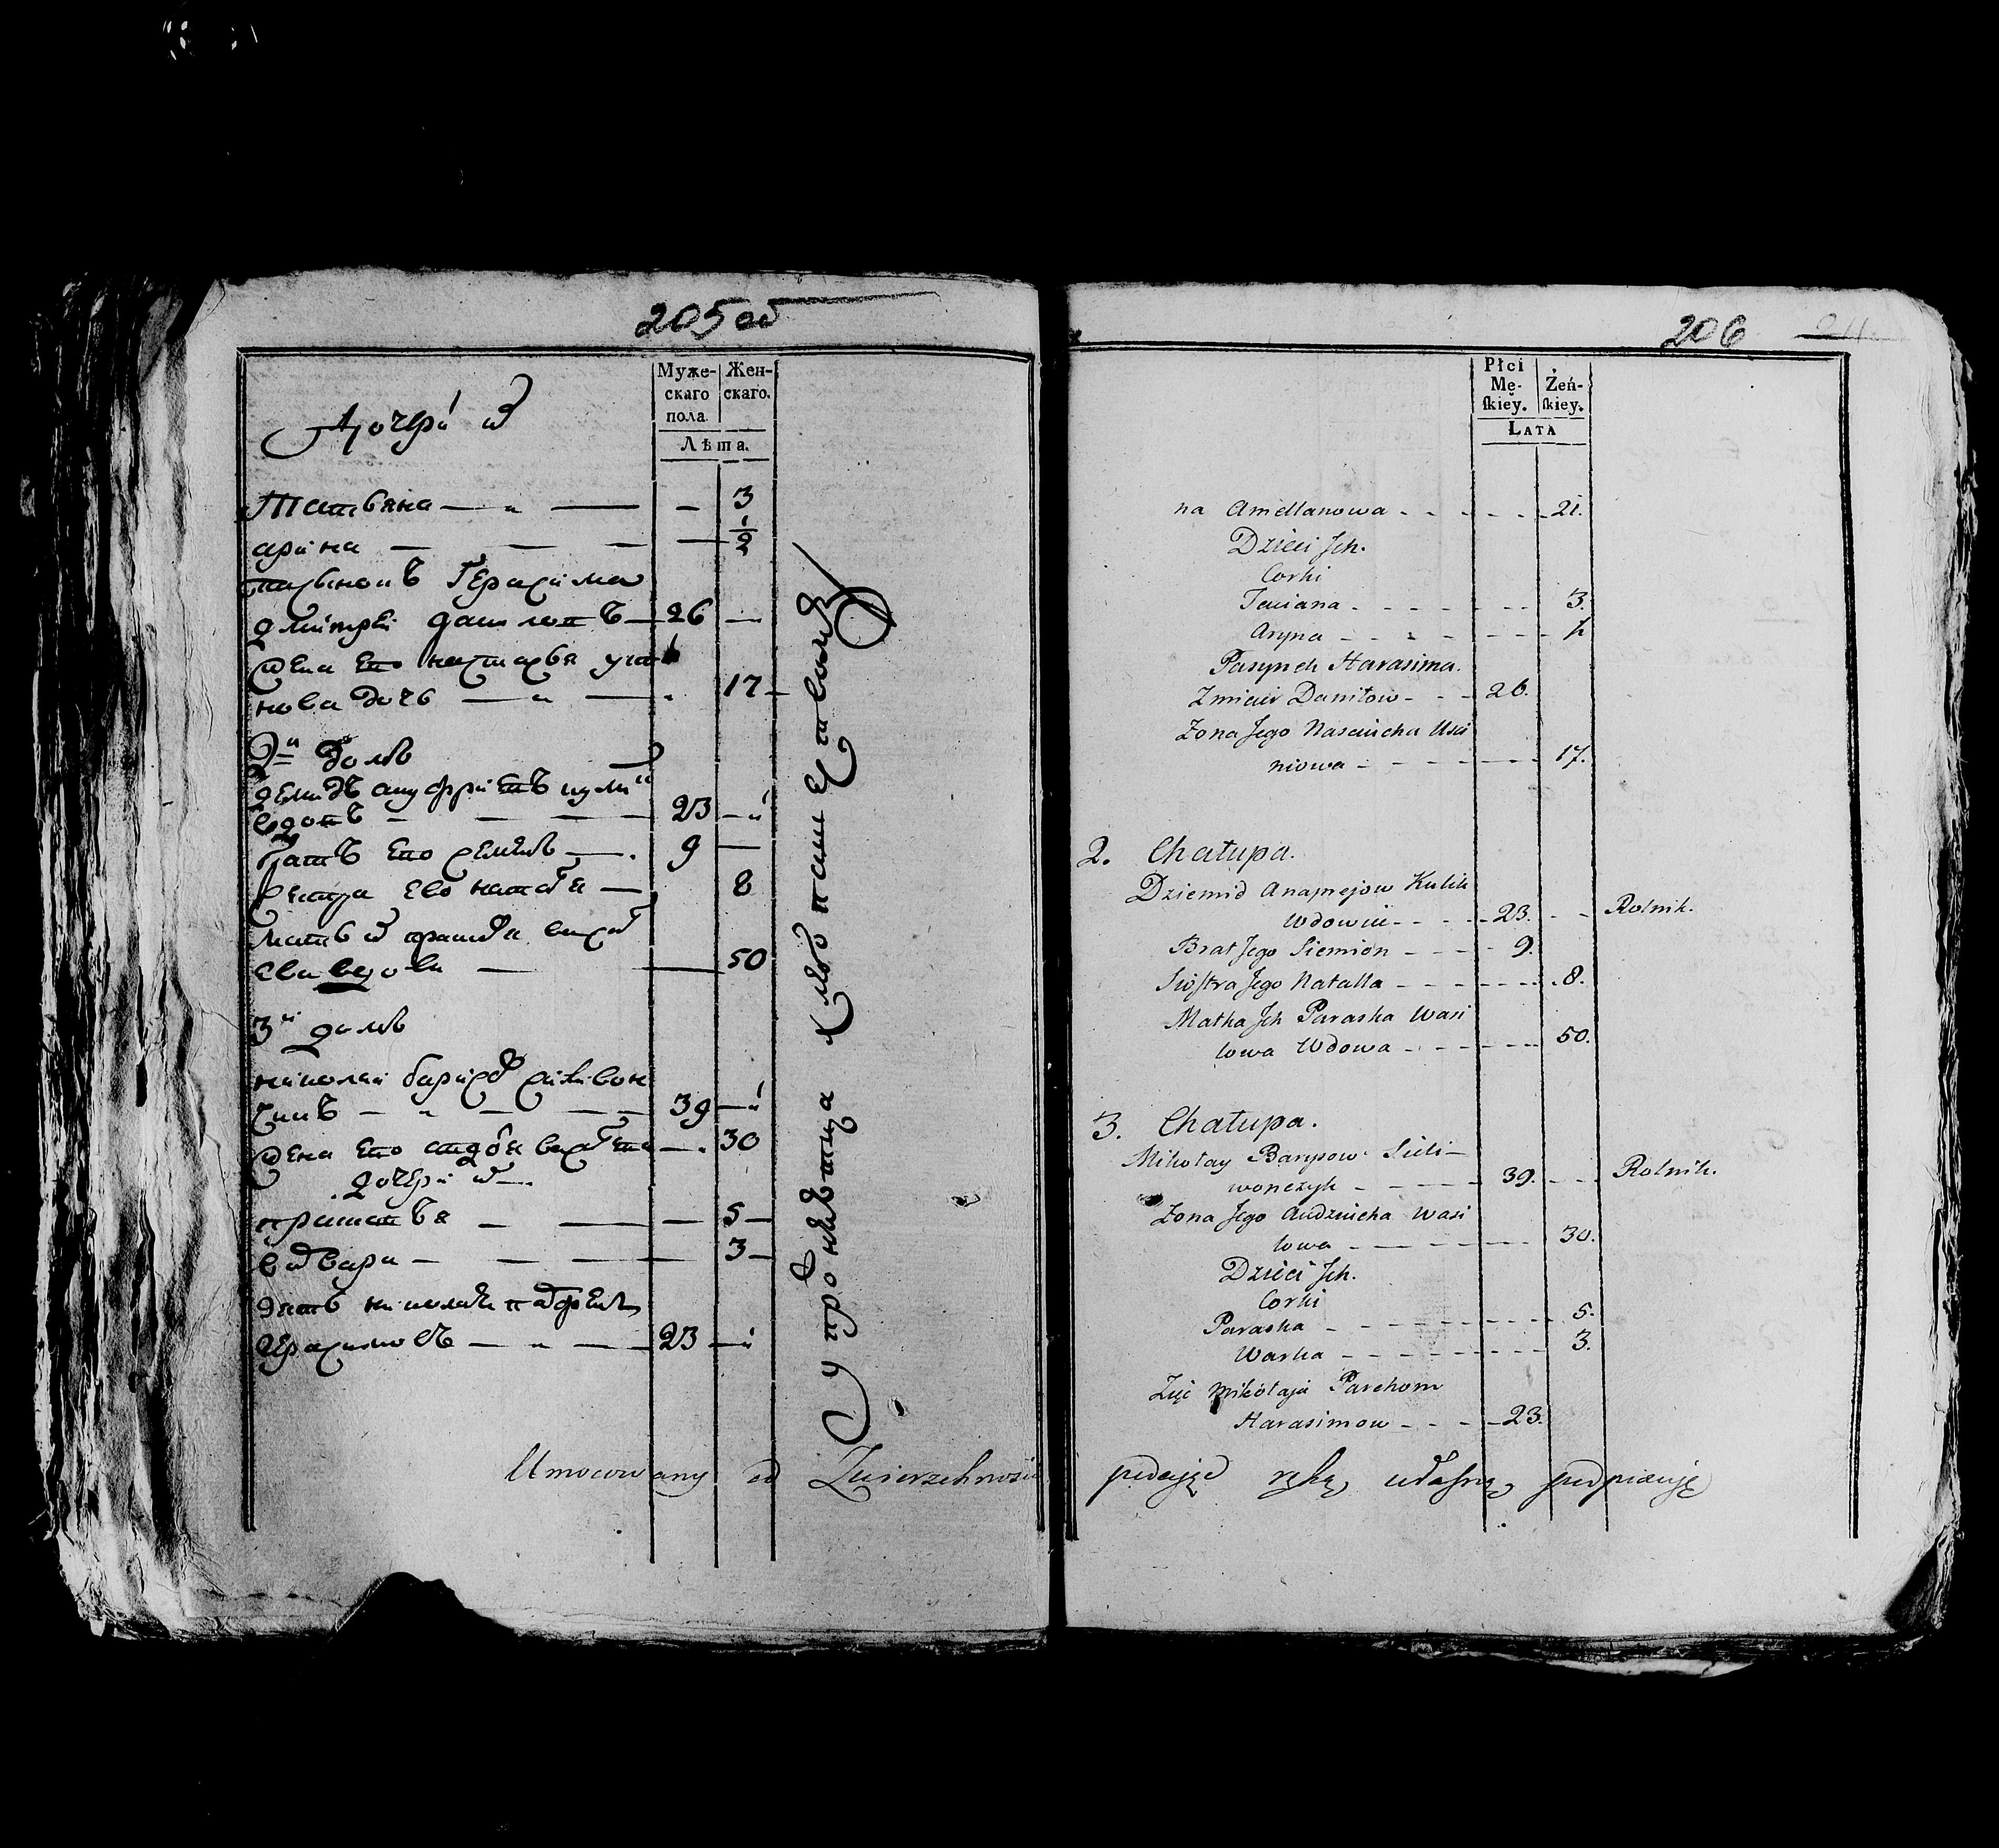 205 об
Муже-
скаго
пола
Жен-
скаго.
Лѣта.
Дочери и
Татьяна 3
арина 1/2
пасынокъ Герасима
дмитрей даниловъ 26
жена его настасья усти
нова дочь 17
2й домъ
демидъ ануфриевъ кули
вдовъ 23
братъ его семенъ 9
сестра его наталья 8
мать их прасковья васил
ева вдова 50
3й домъ
николай барисов селивон
чикъ 39
жена его авдотья васильева 30
дочери их
прасковья 5
варвара 3
зять николая пархом
Герасимовъ 23
Umocowany od Zwierzchności
206
Płci
Mę-
skiey.
Żeń-
skiey.
LATA
na Amellanowa 21.
Dzieci Ich.
Corki
Taciana 3.
Aryna ½
Pasynek Harasima.
Zmicier Daniłow 26.
Zona Jego Nasciucha Usci
niowa 17.
2. Chałupa.
Dziemid Anaprejow Kulik
Wdowiec 23. Rolnik.
Brat Jego Siemion 9.
Siostra Jego Natalla 8.
Matka Ich Paraska Wasi
lowa Wdowa 50.
3. Chałupa.
Mikołay Barysow Sieli-
wonczyk 39. Rolnik.
Zona Jego Audziucha Wasi
lowa 30.
Dzieci Ich.
Corki
Paraska 5.
Warka 3.
Zięć Mikołaja Parchom
Harasimow 23.
podaiąc ręką własną podpisuję